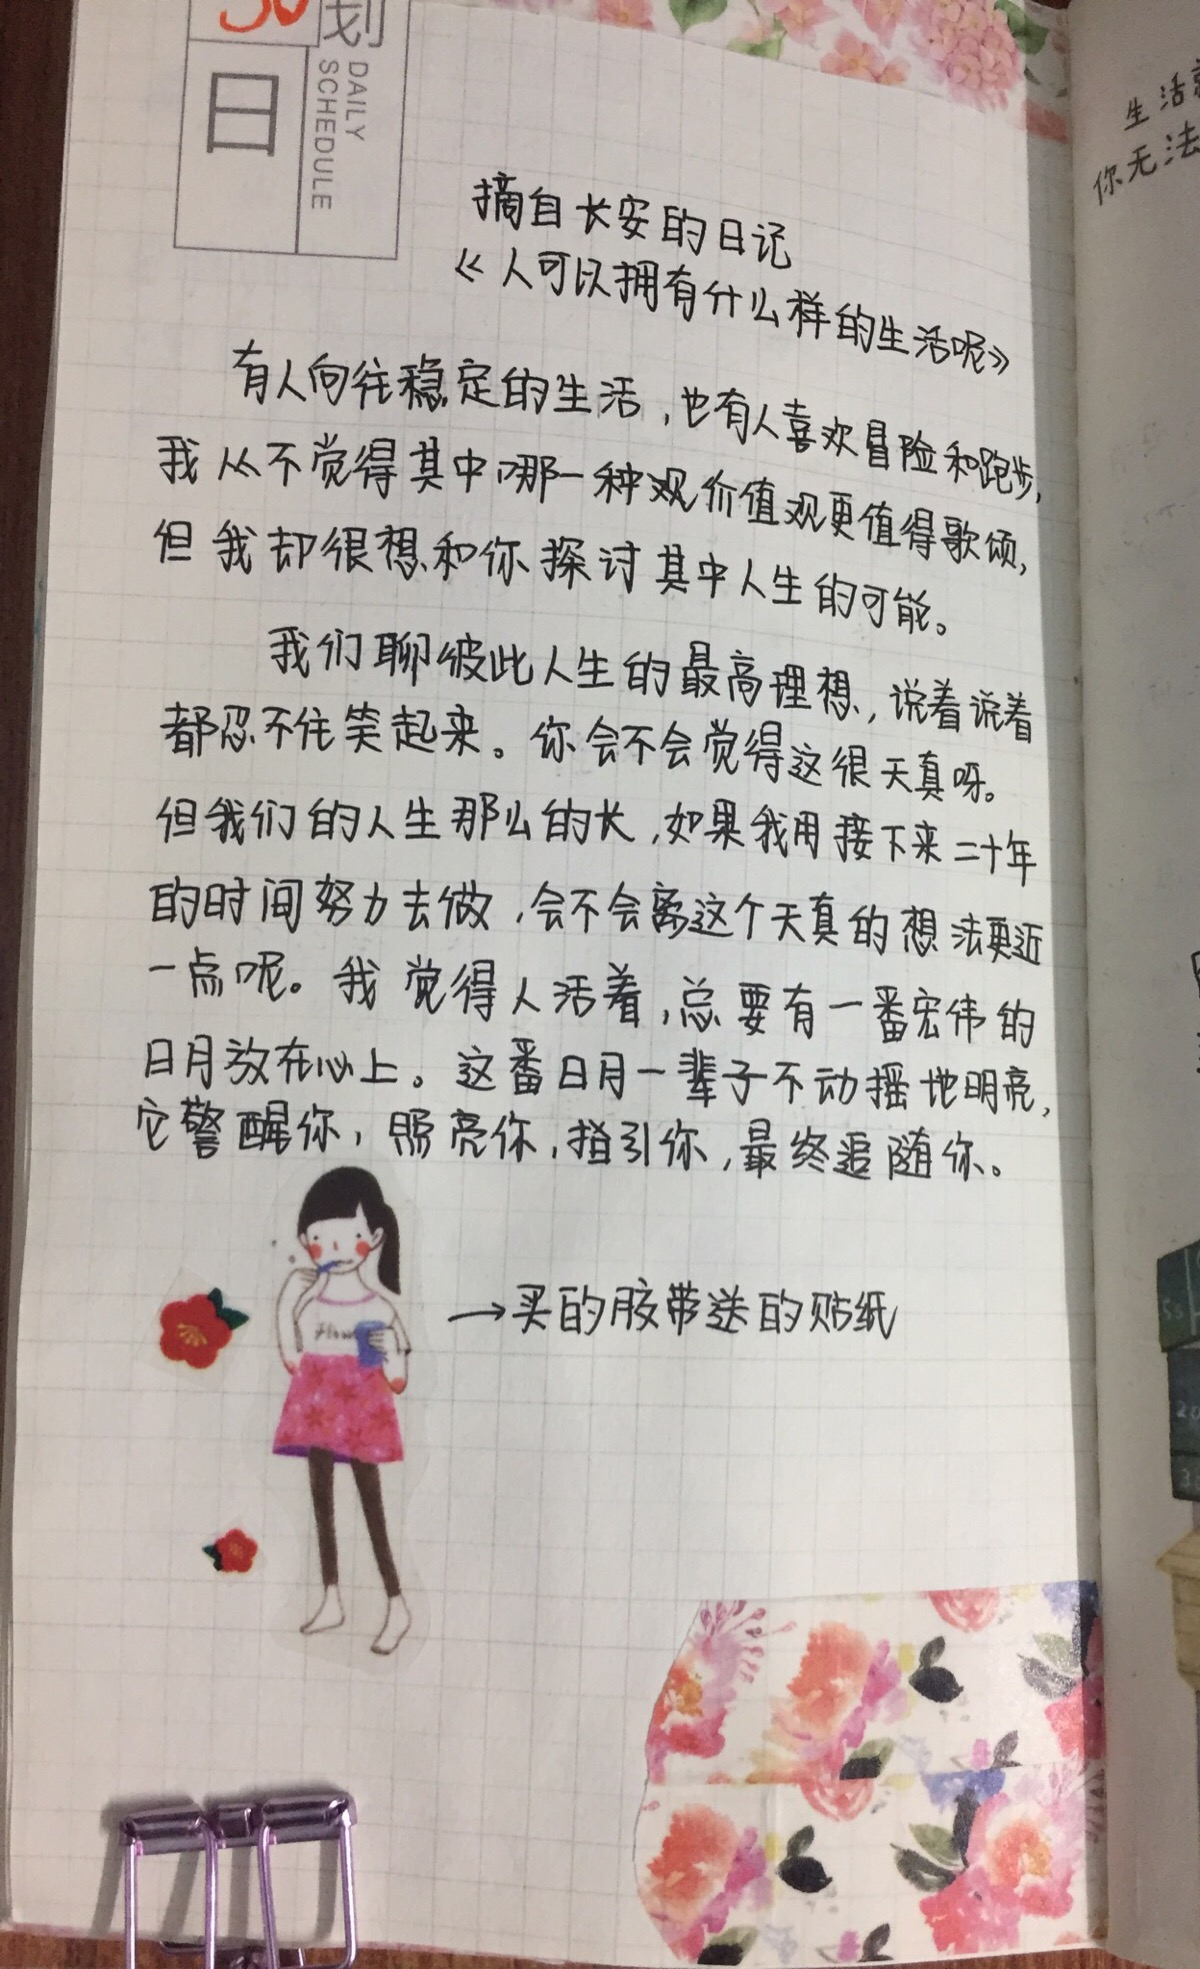 30
划
日
DAILY
SCHEDULE
摘自长安的日记
《人可以拥有什么样的生活呢》
有人向往稳定的生活,也有人喜欢冒险和跑步,
我从不觉得其中哪一种观价值观更值得歌颂,
但我却很想和你探讨其中人生的可能。
我们聊彼此人生的最高理想,说着说着
都忍不住笑起来。你会不会觉得这很天真呀。
但我们的人生那么的长,如果我用接下来二十年
的时间努力去做,会不会离这个天真的想法更近
一点呢。我觉得人活着,总要有一番宏伟的
日月放在心上。这番日月一辈子不动摇地明亮,
它警醒你,照亮你,指引你,最终追随你。
Flow
→买的胶带送的贴纸
生活
你无法